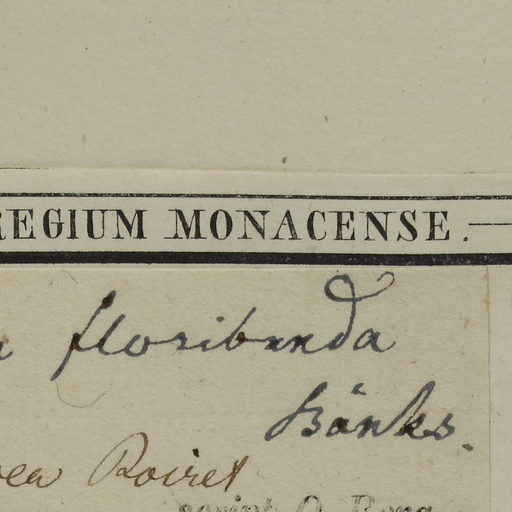 REGIUM MONACENSE.
floribunda
Bänks.
Poiret